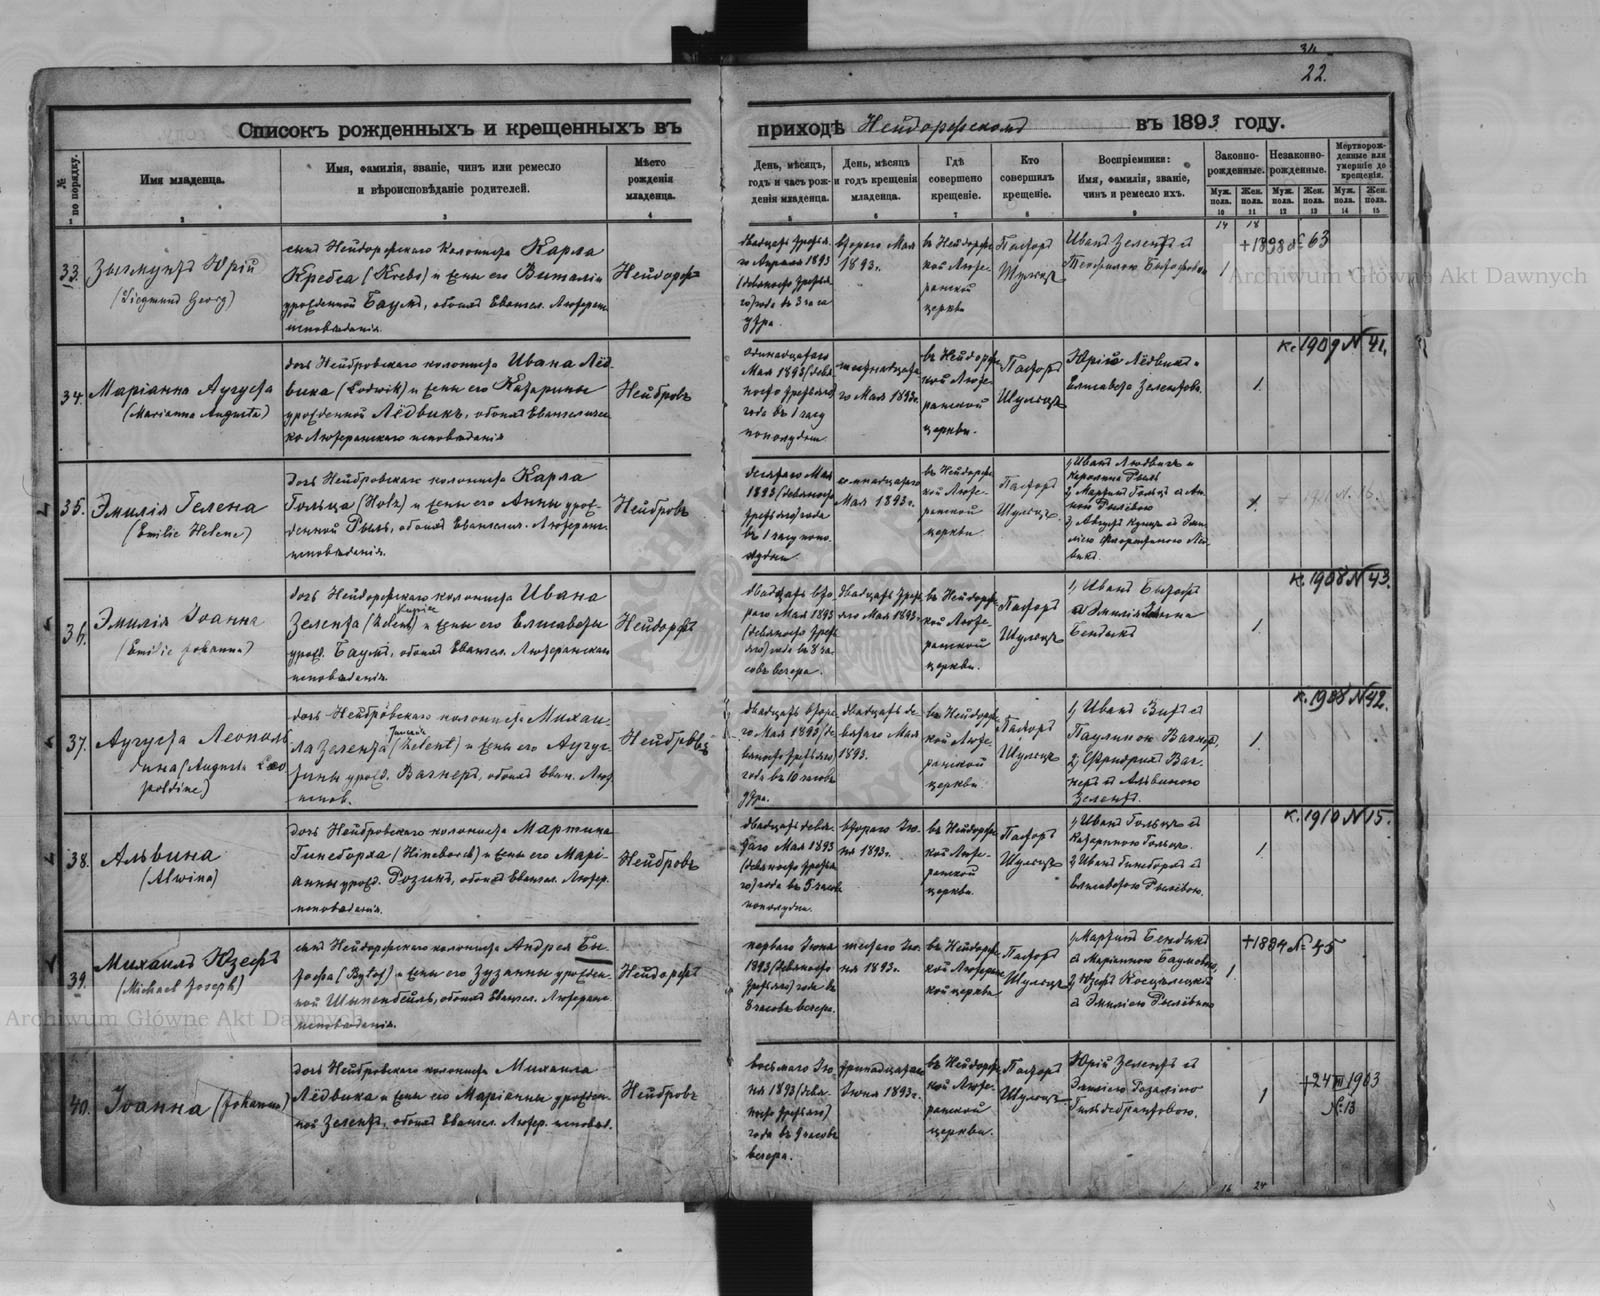 34
22.
Списокъ рожденныхъ и крещенныхъ въ приходѣ Нейдорфскомъ въ 1893 году.
№ по порядку.
Имя младенца.
Имя, фамилія, званіе, чинъ или ремесло
и вѣроисповѣданіе родителей.
Мѣсто
рожденія
младенца.
День, мѣсяцъ,
годъ и часъ рож-
денія младенца.
День, мѣсяцъ
и годъ крещенія
младенца.
Гдѣ
совершено
крещеніе.
Кто
совершилъ
крещеніе.
Воспріемники:
Имя, фамилія, званіе,
чинъ и ремесло ихъ.
Законно-
рожденные.
Незаконно-
рожденные.
Мертворож-
денные или
умершіе до
крещенія.
Муж. пола.
Жен. пола.
Муж. пола.
Жен. пола.
Муж. пола.
Жен. пола.
1 2 3 4 5 6 7 8 9 10 11 12 13 14 15
14 18
33.
Зыгмунтъ Юрій
(Siegmund Georg)
сынъ Нейдорфскаго колониста Карла
Кребса (Krebs) и жены его Виталіи
урожденной Баумъ, обоихъ Евангел. Лютеран.
исповѣданія
Нейдорфъ
двадцать третья-
го Апрѣля 1893
(девяносто третья-
го) года въ 3 часа
утра.
второго Мая
1893 г.
въ Нейдорф-
ской Люте-
ранской
церкви
Пасторъ
Шульцъ
Иванъ Зелентъ и
1
+1898 № 63
34.
Маріанна Аугуста
(Marianna Augusta)
дочь Нейбровскаго колониста Ивана Лёд-
вика (Lodwik) и жены его Катарины
урожденной Лёдвикъ, обоихъ Евангеличес-
ко Лютеранскаго исповѣданія
Нейбровъ
одинадцатаго
Мая 1893 (девя-
носто третьяго)
года въ 1 часу
пополудни.
шестнадцата-
го Мая 1893 г.
въ Нейдорф-
ской Люте-
ранской
церкви.
Пасторъ
Шульцъ
Юрій Лёдвикъ и
Елисавета Зелентова.
1.
к. 1909 № 41.
35.
Эмилія Гелена
(Emilie Helene)
дочь Нейбровскаго колониста Карла
Гольца (Holz) и жены его Анны урож-
денной Рыль, обоихъ Евангел. Лютеранс.
исповѣданія.
Нейбровъ
десятаго Мая
1893 (девяносто
третьяго) года
въ 1 часу попо-
лудни.
Мая 1893 г.
въ Нейдорф-
ской Люте-
ранской
церкви
Пасторъ
Шульцъ.
1) Иванъ Людвигъ и
Каролина Рыль
2) Мартинъ Гольцъ и Ан-
ной Рылёвою
1.
36.
Эмилія Іоанна
(Emilie Johanna)
дочь Нейдорфскаго колониста Ивана
Зелента (Zelent) и жены его Елисаветы
урожд. Баумъ, обоихъ Евангел. Лютеранскаго
исповѣданія.
Нейдорфъ
двадцать вто-
раго Мая 1893
(девяносто треть-
яго) года въ 8 ча-
совъ вечера.
двадцать треть-
яго Мая 1893 г.
въ Нейдорф-
ской Люте-
ранской
церкви.
Пасторъ
Шульцъ
1) Иванъ Бытофъ
и Эмилія Анна
Бендыкъ
1.
к. 1908 № 43.
37.
Аугуста Леополь-
дина (Augusta Leo-
poldine)
дочь Нейбровскаго колониста Михаи-
ла Зелента (Zelent) и жены его Аугус-
тины урожд. Вагнеръ, обоихъ Еван. Лют.
испов.
Нейбровъ
двадцать второ-
го Мая 1893 (де-
вяносто третьяго)
года въ 10 часовъ
утра.
двадцать де-
вятаго Мая
1893.
въ Нейдорф-
ской Люте-
ранской
церкви.
Пасторъ
Шульцъ
1) Иванъ Витъ и
Паулиною Вагнеръ,
2) Фридрихъ Ваг-
неръ и Альвиною
Зелентъ.
1.
к. 1908 № 42.
38.
Альвина
(Alwina)
дочь Нейбровскаго колониста Мартина
Гинеборха (Hineborch) и жены его Марі-
анны урожд. Розинъ, обоихъ Евангел. Лютер.
исповѣданія.
Нейбровъ
двадцать девя-
таго Мая 1893
(девяносто третья-
го) года въ 5 часовъ
пополудни.
втораго Ію-
ня 1893 г.
въ Нейдорф-
ской Люте-
ранской
церкви.
Пасторъ
Шульцъ
1) Иванъ Гольцъ и
Катериною Гольцъ.
2) Иванъ Гинеборхъ и
Елисаветою Рылёвою.
1.
к. 1910 № 15.
39.
Михаилъ Юзефъ
(Michael Joseph)
сынъ Нейдорфскаго колониста Андрея Бы-
тофа (Bytof) и жены его Зузанны урожден-
ной Шыненбейль, обоихъ Евангел. Лютеранс.
исповѣданія.
Нейдорфъ
перваго Іюня
1893 (девяносто
третьяго) года въ
8 часовъ вечера.
шестаго Ію-
ня 1893 г.
въ Нейдорф-
ской Лютеранс-
кой церкви
Пасторъ
Шульцъ
1) Мартинъ Бендыкъ
и Маріанною Баумовою,
и Эмиліею Рылёвою
1.
+1894 № 45
40.
Іоанна (Johanna)
дочь Нейбровскаго колониста Михаила
Лёдвика и жены его Маріанны урожден-
ной Зелентъ, обоихъ Евангел. Лютер. исповѣд.
Нейбровъ
восьмаго Ію-
ня 1893 (девя-
носто третьяго)
года въ 9 часовъ
вечера.
тринадцатаго
Іюня 1893 г.
въ Нейдорф-
ской Люте-
ранской
церкви.
Пасторъ
Шульцъ.
Юрій Зелентъ и
Эмиліею Розаліею
Гильдебрантовою.
1
+24 III 1903
№ 13
16 24
Archiwum Główne Akt Dawnych
Archiwum Główne Akt Dawnych